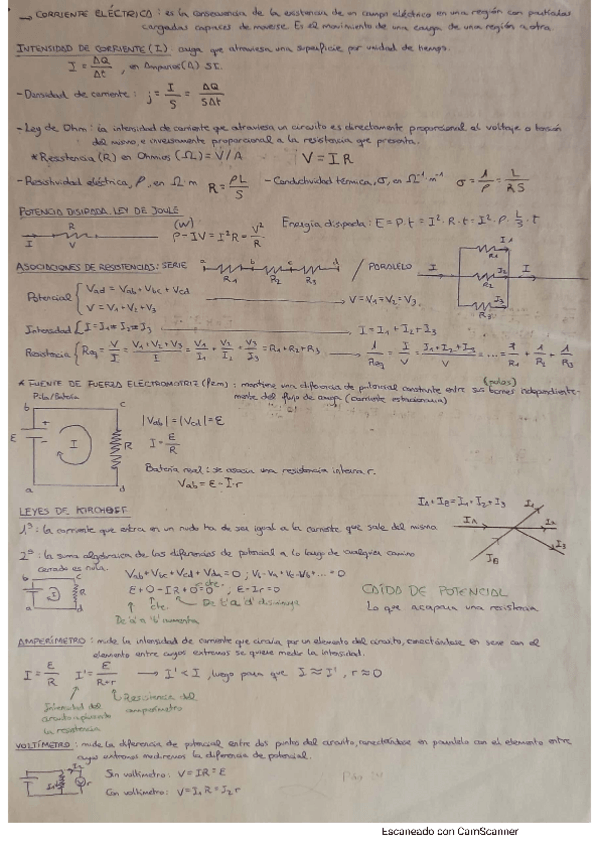 → CORRIENTE ELÉCTRICA: es la consecuencia de la existencia de un campo eléctrico en una región con partículas
cargadas capaces de moverse. Es el movimiento de una carga de una región a otra.
INTENSIDAD DE CORRIENTE (I) carga que atraviesa una superficie por unidad de tiempo.
I = ΔQ/Δt, en Amperios (A) SI.
- Densidad de corriente: j = I/S = ΔQ/SΔt
- Ley de Ohm: la intensidad de corriente que atraviesa un circuito es directamente proporcional al voltaje o tensión
del mismo, e inversamente proporcional a la resistencia que presenta.
* Resistencia (R) en Ohmios (Ω) = V/A V = IR
- Resistividad eléctrica, ρ, en Ω·m R = ρL/S - Conductividad térmica, σ, en Ω⁻¹·m⁻¹ σ = 1/ρ = L/RS
POTENCIA DISIPADA. LEY DE JOULE
I R V (W) P = IV = I²R = V²/R Energía disipada: E = P·t = I²·R·t = I²·ρ·L/S·t
ASOCIACIONES DE RESISTENCIAS: SERIE a b c d R1 R2 R3 / PARALELO I I1 R1 I2 R2 I3 R3 I
Potencial { Vad = Vab + Vbc + Vcd
V = V1 + V2 + V3 → V = V1 = V2 = V3.
Intensidad { I = I1 = I2 = I3 → I = I1 + I2 + I3
Resistencia { Req = V/I = V1+V2+V3/I = V1/I1 + V2/I2 + V3/I3 = R1 + R2 + R3 → 1/Req = I/V = I1+I2+I3/V = .... = 1/R1 + 1/R2 + 1/R3
* FUENTE DE FUERZA ELECTROMOTRIZ (fem): mantiene una diferencia de potencial constante entre sus bornes (polos) independiente-
mente del flujo de carga (corriente estacionaria)
Pila/Batería
b c
ε + - I R
a d
|Vab| = |Vcd| = ε
I = ε/R
Batería real: se asocia una resistencia interna r.
Vab = ε - I·r
LEYES DE KIRCHOFF
IA + IB = I1 + I2 + I3
IA IB I1 I2 I3
1ª: la corriente que entra en un nudo ha de ser igual a la corriente que sale del mismo
2ª: la suma algebraica de las diferencias de potencial a lo largo de cualquier camino
cerrado es nula.
b c I R a d
Vab + Vbc + Vcd + Vda = 0
E + 0 - IR + 0 = 0 ; E - Ir = 0
cte. cte.
De 'a' a 'b' aumenta
De 'c' a 'd' disminuye
CAÍDA DE POTENCIAL
Lo que acapara una resistencia
AMPERÍMETRO: mide la intensidad de corriente que circula por un elemento del circuito, conectándose en serie con el
elemento entre cuyos extremos se quiere medir la intensidad.
I = E/R I' = E/R+r → I' < I, luego para que I ≈ I', r ≈ 0
Intensidad del
circuito
la resistencia
Resistencia del
amperímetro
VOLTÍMETRO: mide la diferencia de potencial entre dos puntos del circuito, conectándose en paralelo con el elemento entre
cuyos extremos mediremos la diferencia de potencial.
Sin voltímetro: V = IR = E
Con voltímetro: V = I1 R = I2 r
Escaneado con CamScanner